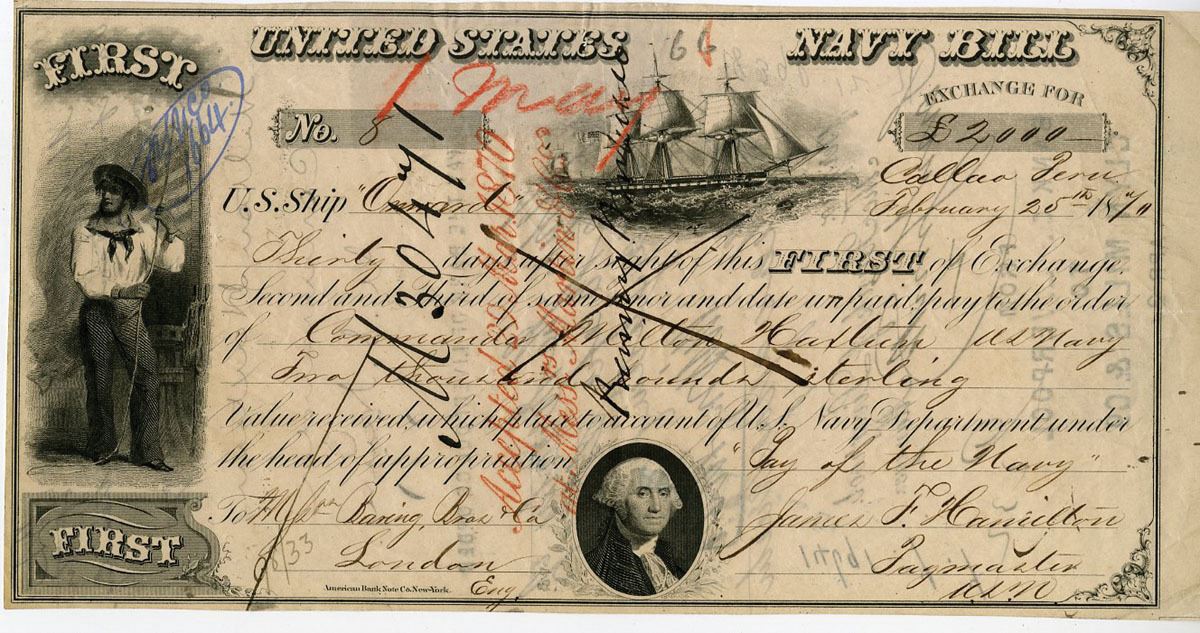 FIRST
UNITED STATES NAVY BILL
66
1 May
EXCHANGE FOR
No. 5
£2000
Callao Peru
U.S. Ship "Onward"
February 25th 1870
Thirty days after sight of this FIRST of Exchange.
Second and Third of same tenor and date unpaid, pay to the order
of Commander Milton Haxtun US Navy
Two thousand pounds sterling
Value received, which place to account of U.S. Navy Department under
the head of appropriation "Pay of the Navy"
To Baring Bros Co
James F. Hamilton
London
Paymaster
Eng.
U.S.N
FIRST
American Bank Note Co. New-York.
Accepted 1870
at Messrs Martin
33